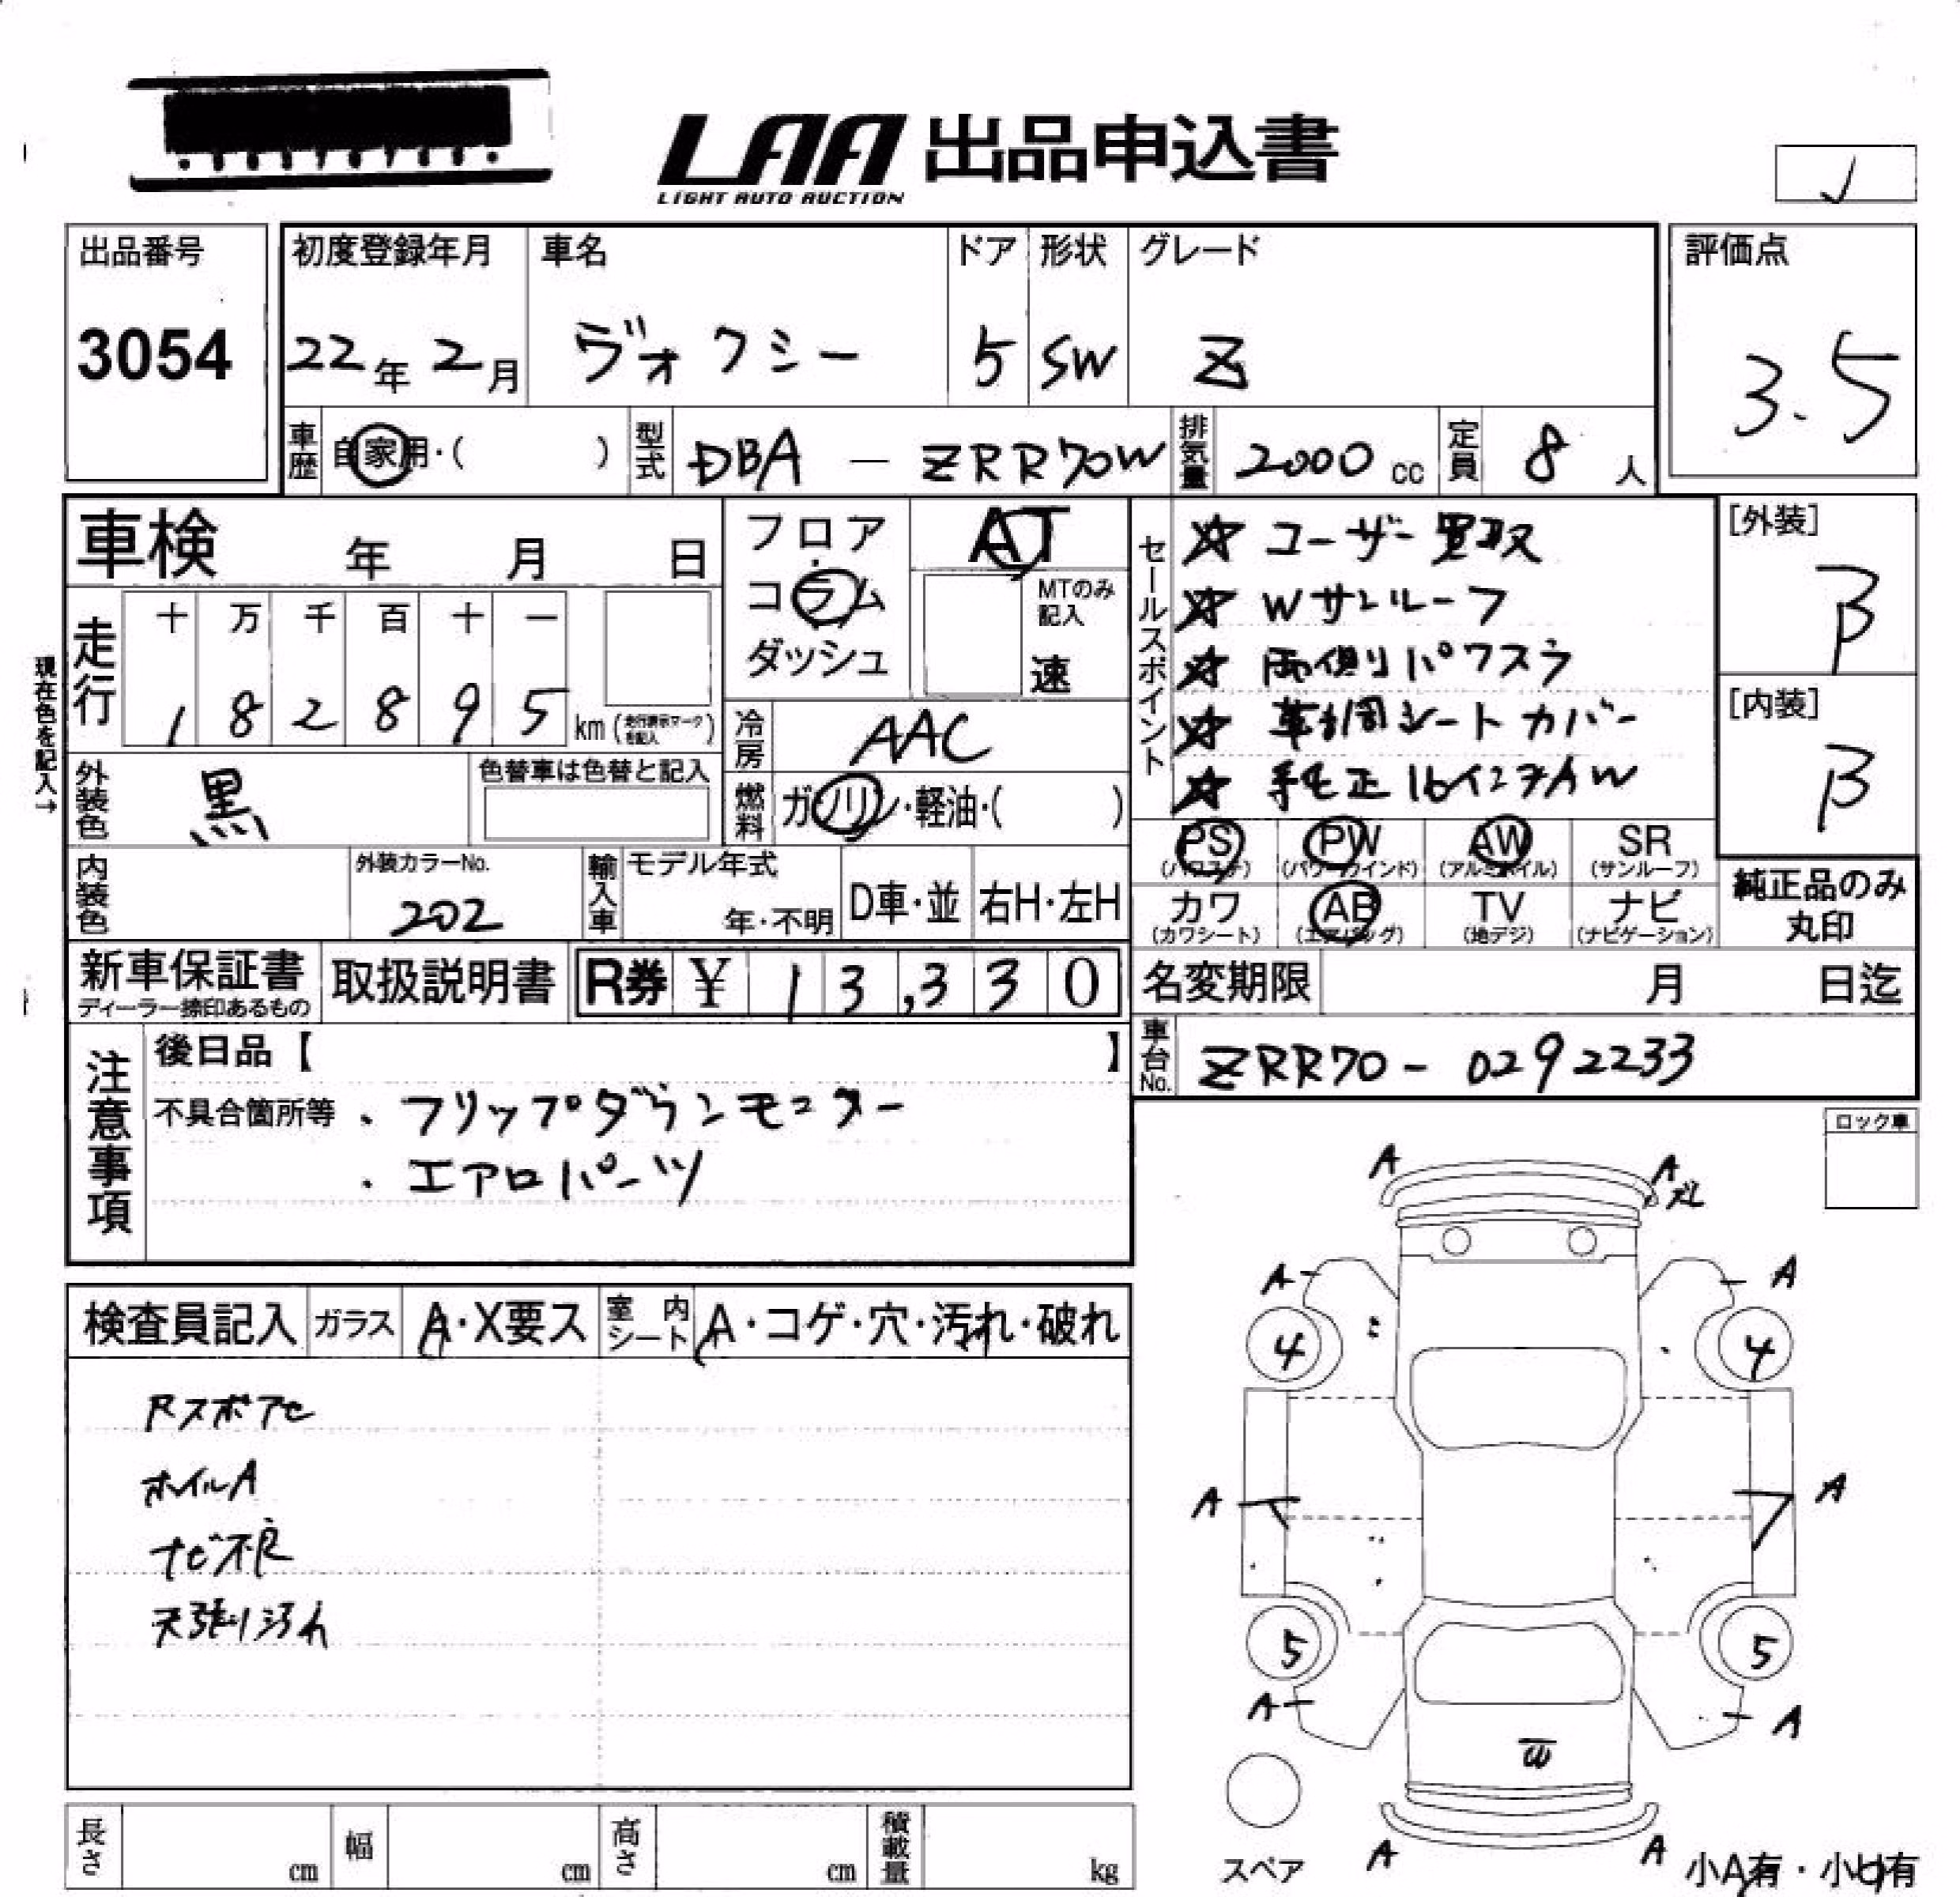 LAA 出品申込書
LIGHT AUTO AUCTION
出品番号
3054
初度登録年月
22年 2月
車名
ヴォクシー
ドア
5
形状
SW
グレード
Z
評価点
3.5
車歴 自家用・( )
型式 DBA - ZRR70W
排気量 2000 cc
定員 8 人
車検 年 月 日
フロア
コラム
ダッシュ
AT
MTのみ記入
速
セールスポイント
☆ ユーザー買取
☆ Wサンルーフ
☆ 両側パワスラ
☆ 革調シートカバー
☆ 純正16インチAW
[外装]
B
[内装]
B
現在色を記入→
走行
十 万 千 百 十 一
1 8 2 8 9 5 km (走行表示マークを記入)
冷房 AAC
燃料 ガソリン・軽油・( )
外装色 黒
色替車は色替と記入
内装色
外装カラーNo.
202
輸入車
モデル年式
年・不明
D車・並
右H・左H
PS (パワステ)
PW (パワーウインド)
AW (アルミホイル)
SR (サンルーフ)
カワ (カワシート)
AB (エアバッグ)
TV (地デジ)
ナビ (ナビゲーション)
純正品のみ丸印
新車保証書
ディーラー捺印あるもの
取扱説明書
R券 ¥ 13,330
名変期限 月 日迄
車台No. ZRR70 - 0292233
注意事項
後日品【 】
不具合箇所等 ・フリップダウンモニター
・エアロパーツ
ロック車
検査員記入
ガラス A・X要ス
室内シート A・コゲ・穴・汚れ・破れ
Rスポアセ
ホイルA
ナビ不良
天張り汚れ
A
A
ズレ
A
A
4
4
A
A
5
5
A
A
A
A
スペア
小A有・小U有
長さ cm
幅 cm
高さ cm
積載量 kg